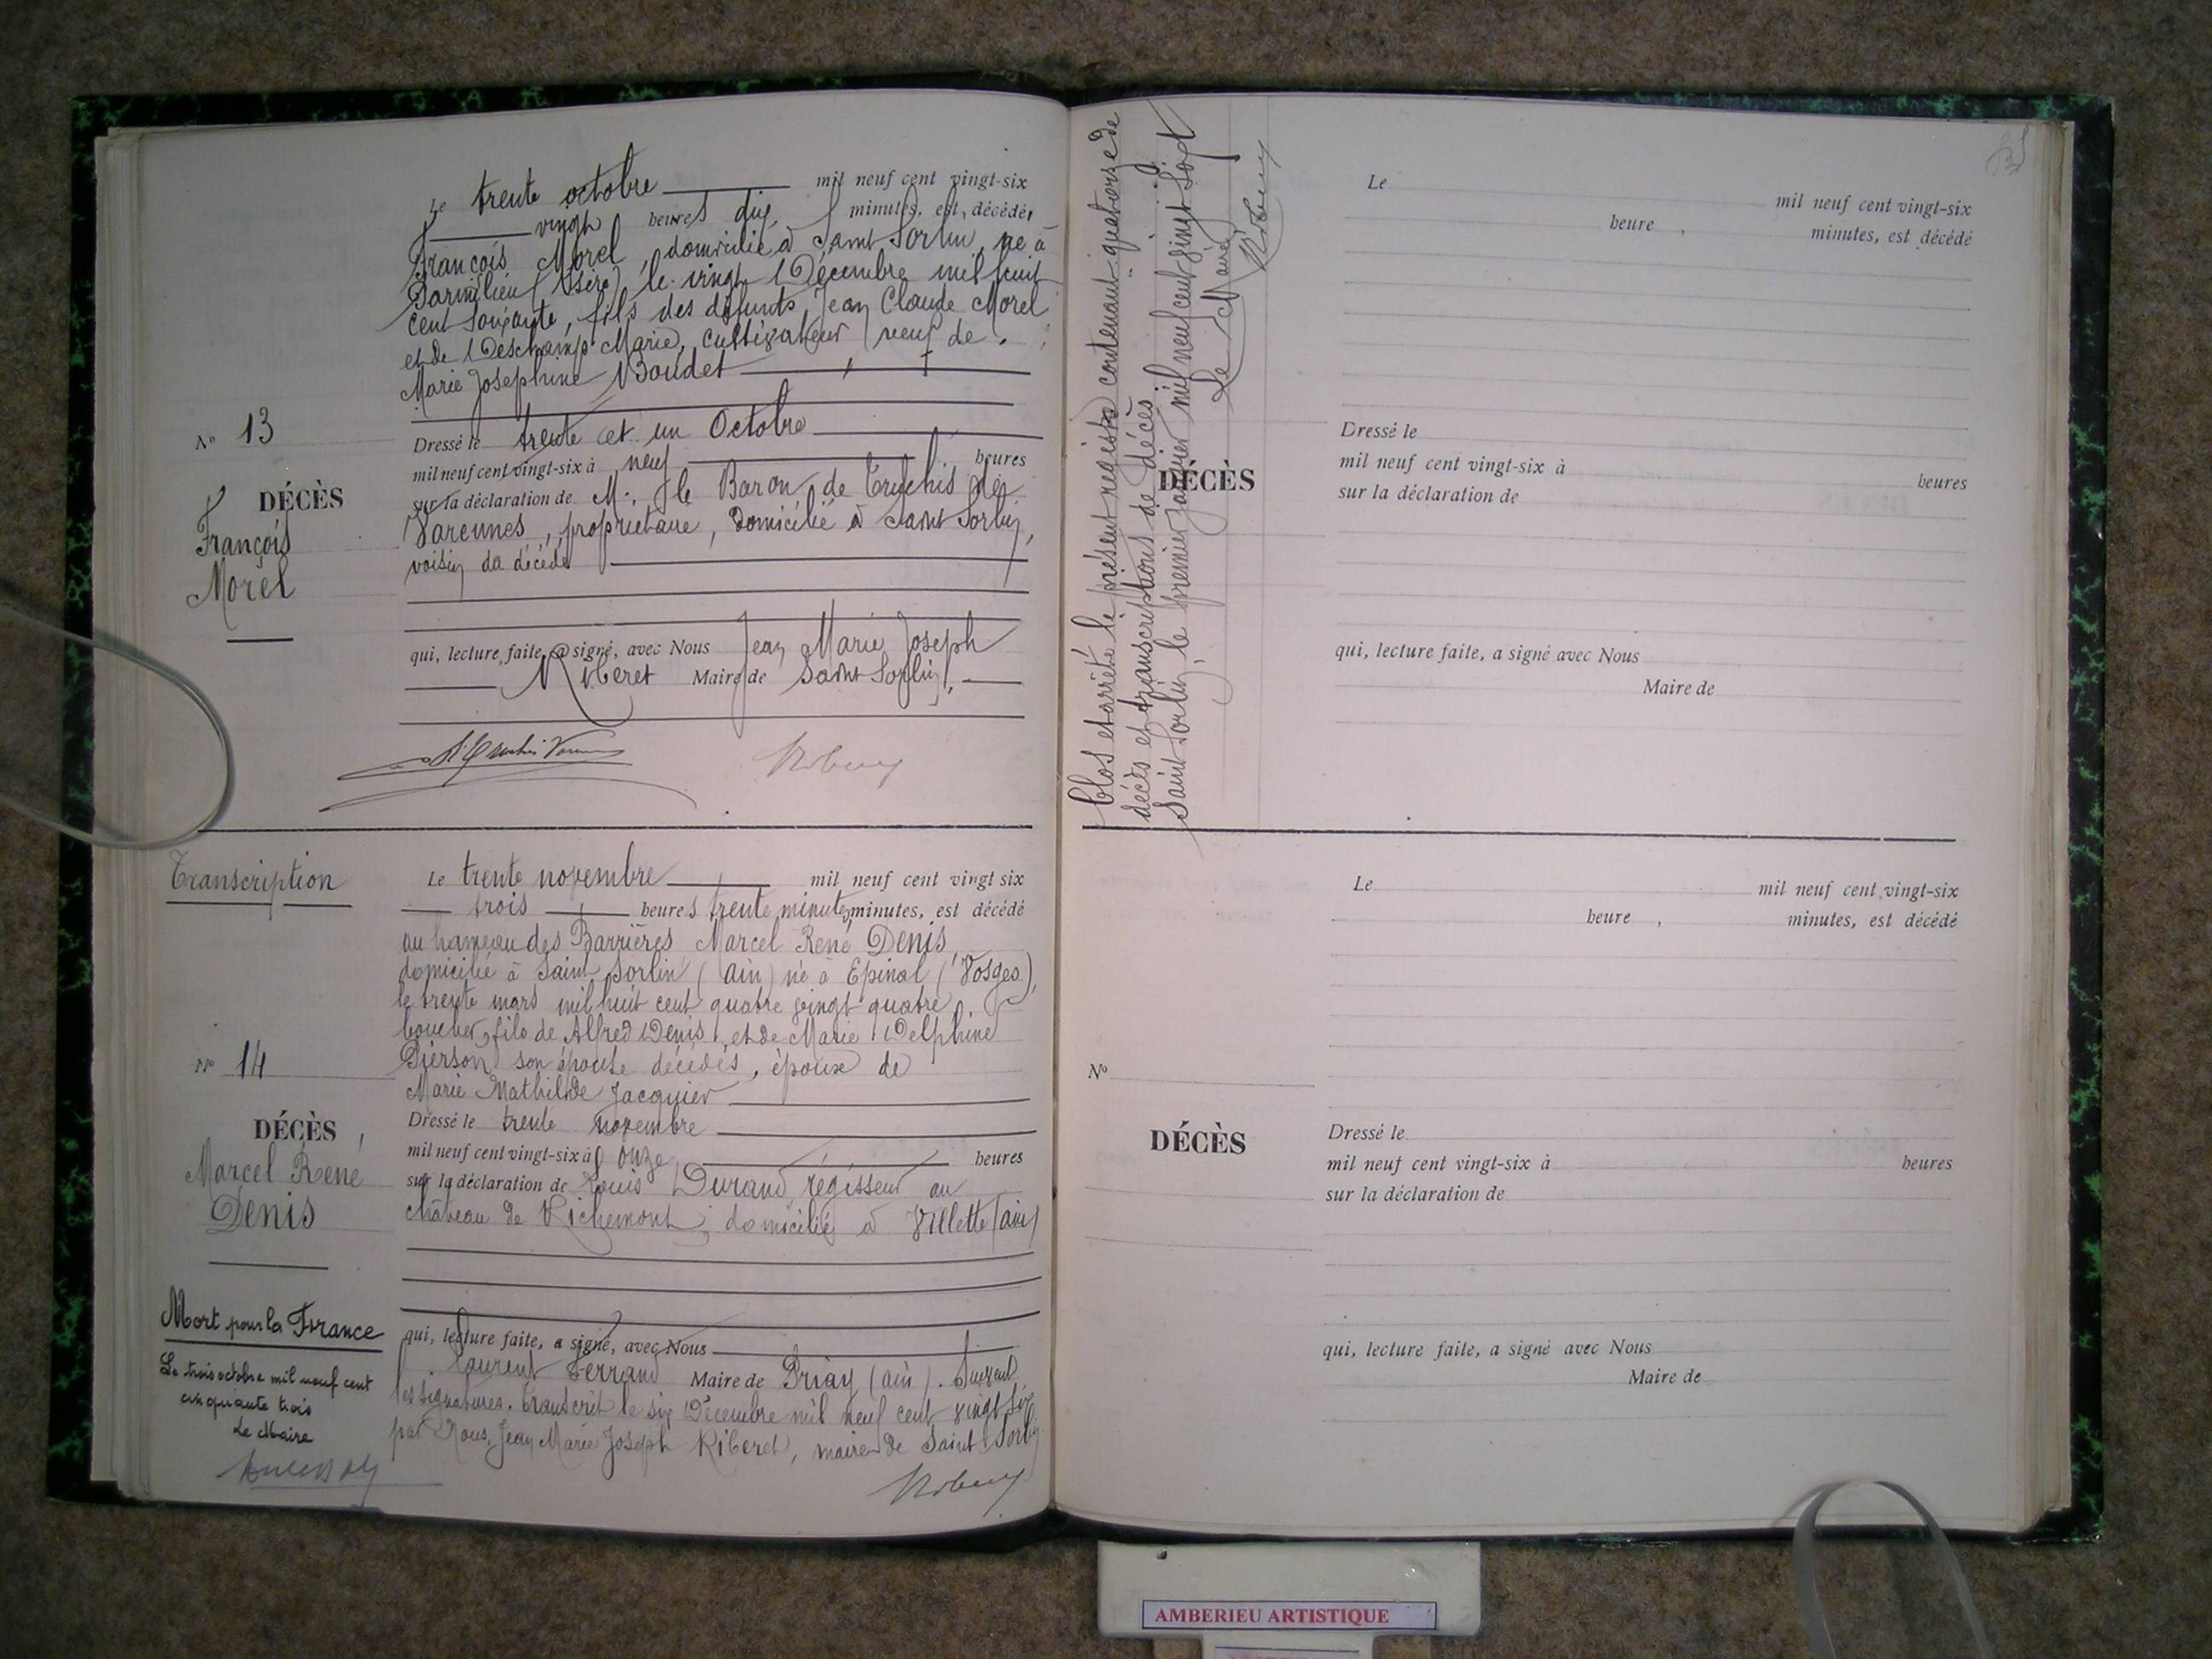 Le trente octobre mil neuf cent vingt-six
vingt heures dix minutes, est décédé
François Morel, domicilié à Saint Sorlin, né à
Parmilieu (Isère) le vingt Décembre mil huit
cent soixante, fils des défunts Jean Claude Morel
et de Deschamp Marie, cultivateur veuf de
Marie Josephine Boudet
N° 13
DÉCÈS
François
Morel
Dressé le trente et un Octobre
mil neuf cent vingt-six à neuf heures
sur la déclaration de M. le Baron de Truchis de
Varennes, propriétaire, domicilié à Saint Sorlin,
voisin du décédé
qui, lecture faite, a signé, avec Nous Jean Marie Joseph
Riberet Maire de Saint Sorlin,
Transcription
Le trente novembre mil neuf cent vingt six
trois heures trente minutes minutes, est décédé
au hameau des Barrières Marcel René Denis
domicilié à Saint Sorlin (ain) né à Epinal (Vosges)
le trente mars mil huit cent quatre vingt quatre
boucher, fils de Alfred Denis, et de Marie Delphine
Pierson son épouse décédés, époux de
Marie Mathilde Jacquier
N° 14
DÉCÈS
Marcel René
Denis
Dressé le trente novembre
mil neuf cent vingt-six à onze heures
sur la déclaration de Louis Durand régisseur au
château de Richemont, domicilié à Villette (ain)
qui, lecture faite, a signé, avec Nous
Laurent Ferrand Maire de Priay (ain). Suivent
les signatures. Transcrit le six Décembre mil neuf cent vingt six
par Nous, Jean Marie Joseph Riberet, maire de Saint Sorlin
Mort pour la France
Le trois octobre mil neuf cent
cinquante trois
Le Maire
Clos et arrêté le présent registre contenant quatorze de
décès et transcriptions de décès
Saint Sorlin, le premier Janvier mil neuf cent vingt sept
Le Maire
Le mil neuf cent vingt-six
heure , minutes, est décédé
DÉCÈS
Dressé le
mil neuf cent vingt-six à heures
sur la déclaration de
qui, lecture faite, a signé avec Nous
Maire de
Le mil neuf cent vingt-six
heure , minutes, est décédé
N°
DÉCÈS
Dressé le
mil neuf cent vingt-six à heures
sur la déclaration de
qui, lecture faite, a signé avec Nous
Maire de
AMBERIEU ARTISTIQUE